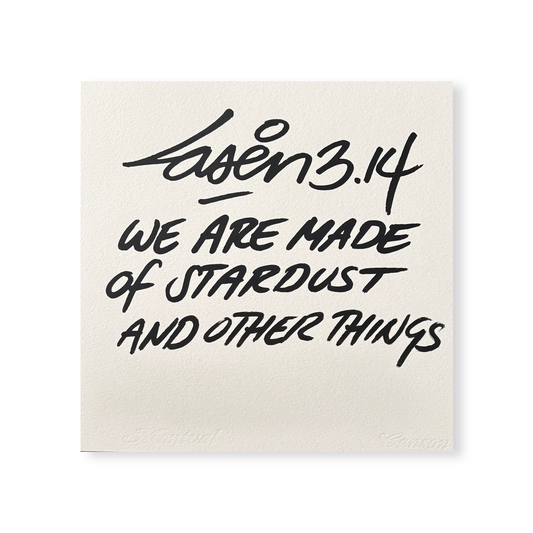 Laser 3.14
WE ARE MADE
Of STARDUST
AND OTHER THINGS